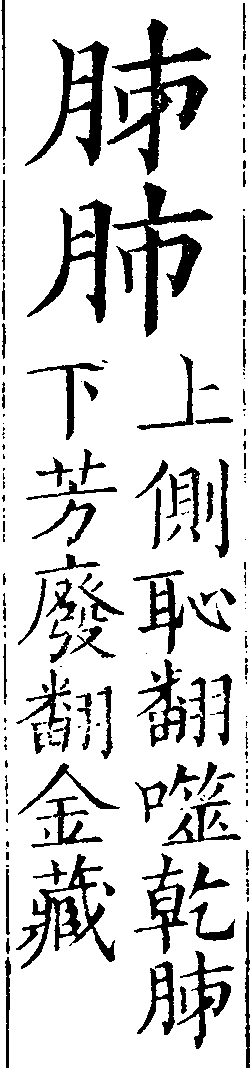 胏肺
上側恥翻噬乾胏
下芳廢翻金藏